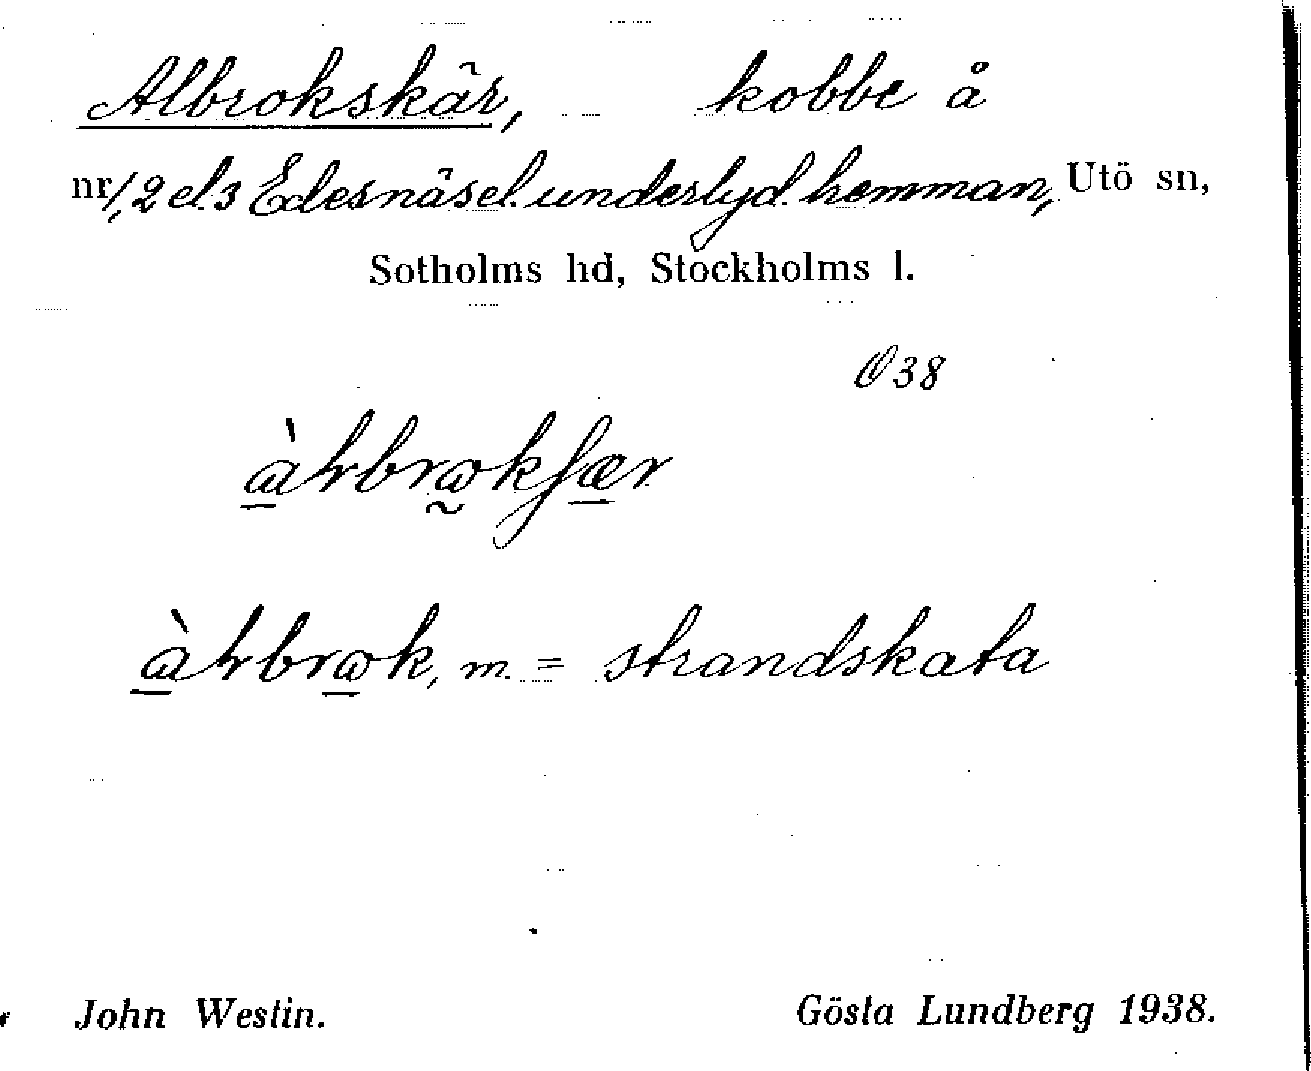 Albrokskär, kobbe å
nr 1, 2 el. 3 Edesnäs el. underlyd. hemman, Utö sn,
Sotholms hd, Stockholms l.
Ö 38
m. = strandskata
John Westin. Gösta Lundberg 1938.